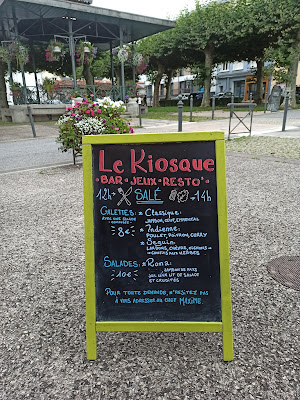 Le Kiosque
BAR • JEUX • RESTO'
12h SALÉ 14h
GALETTES: * Classique:
AVEC UNE SALADE JAMBON, ŒUF, EMMENTAL
COMPOSÉE * Indienne:
8€ POULET, POIVRON, CURRY
* Seguin
LARDONS, CHÈVRE, OIGNONS
CONFITS AUX HERBES
SALADES: * Rona:
10€ JAMBON DE PAYS
DE SALADE
ET CRUDITÉS
POUR TOUTE DEMANDE, N'HÉSITEZ PAS
À VOUS ADRESSER AU CHEF MAXIME.